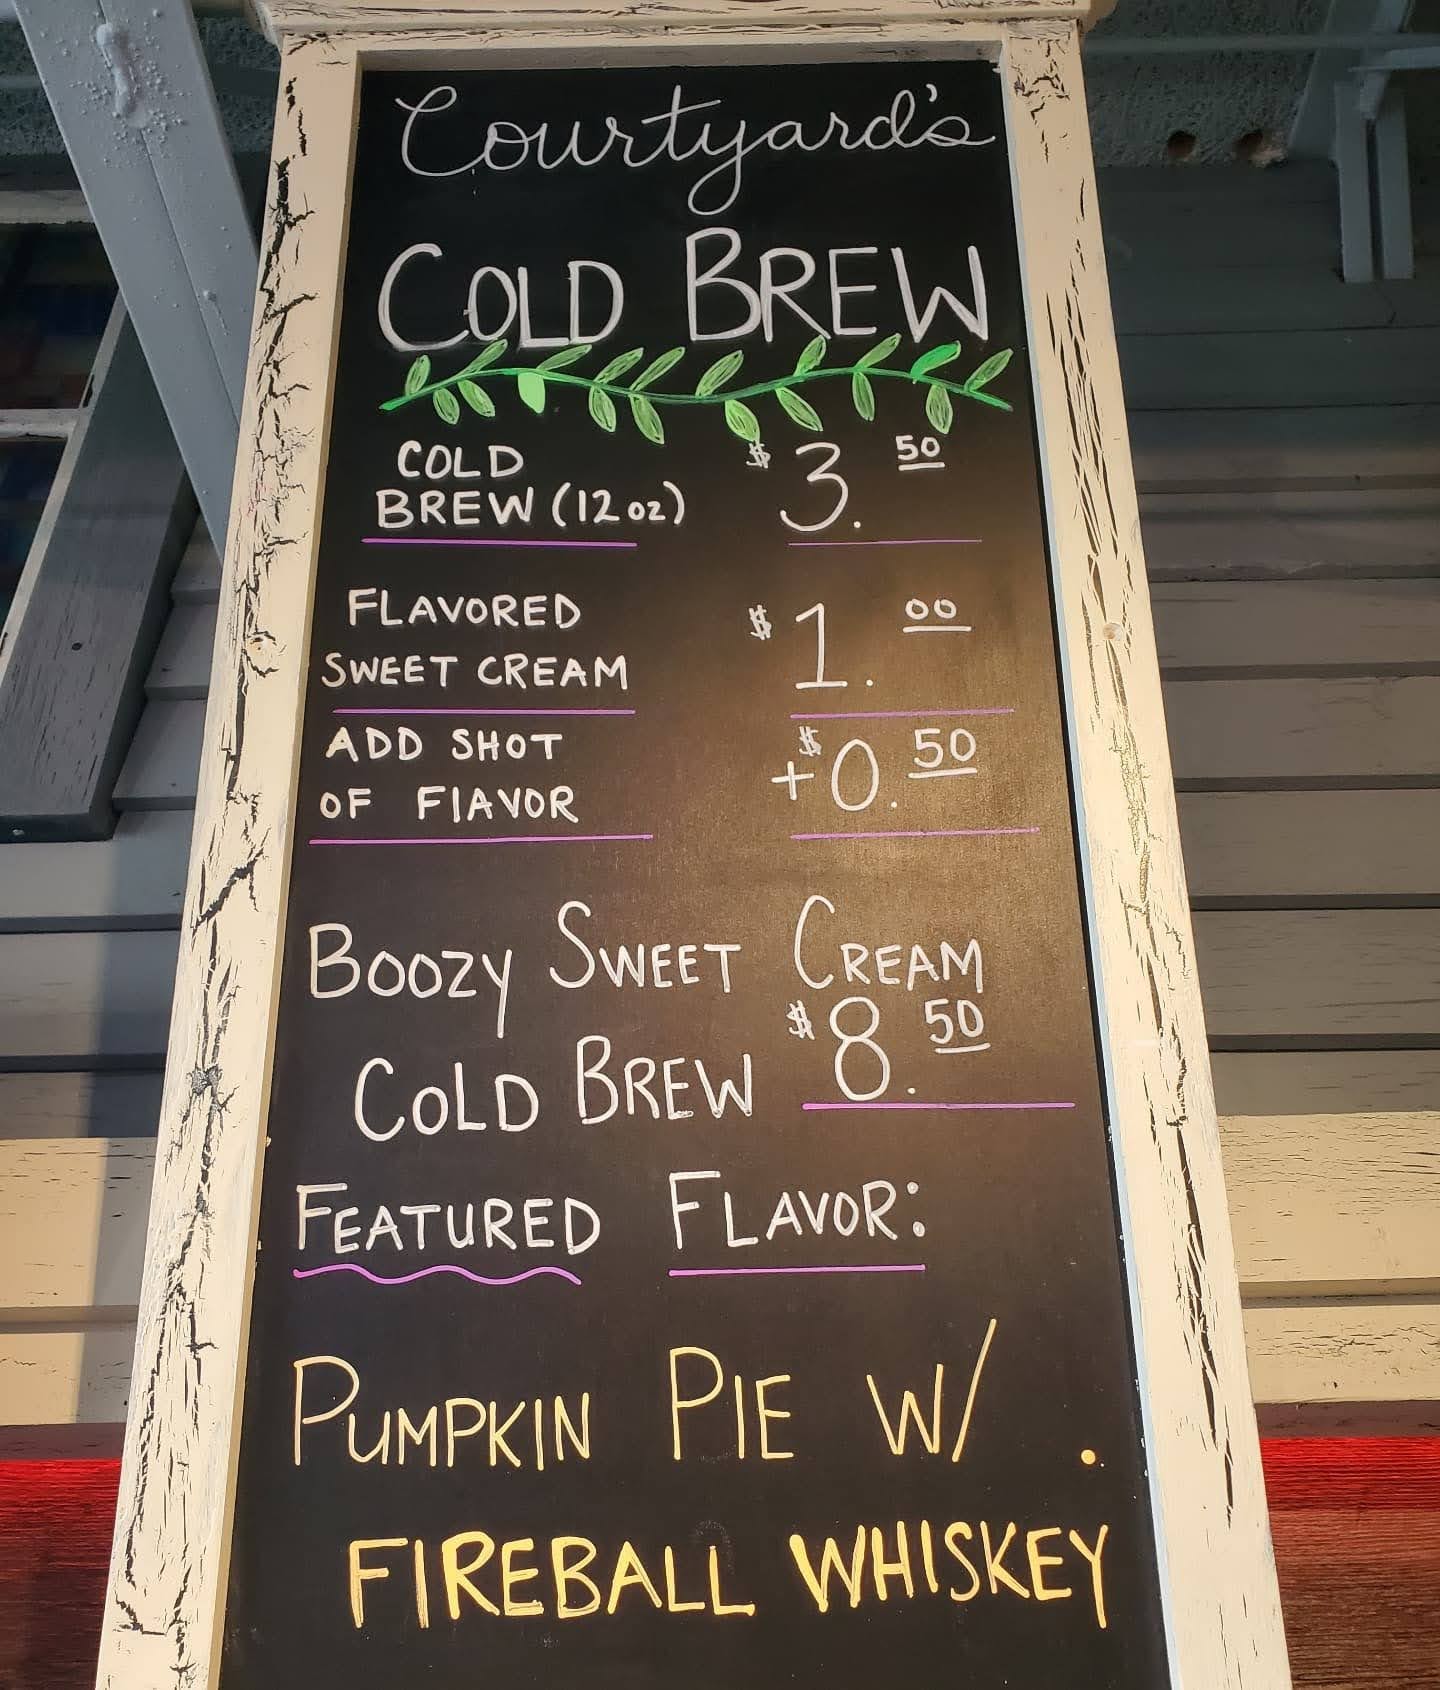 Courtyard's
COLD BREW
COLD
BREW (12 oz) $3.50
FLAVORED
SWEET CREAM $1.00
ADD SHOT
OF FlAVOR +$0.50
BOOZY SWEET CREAM
COLD BREW $8.50
FEATURED FLAVOR:
PUMPKIN PIE W/ .
FIREBALL WHISKEY